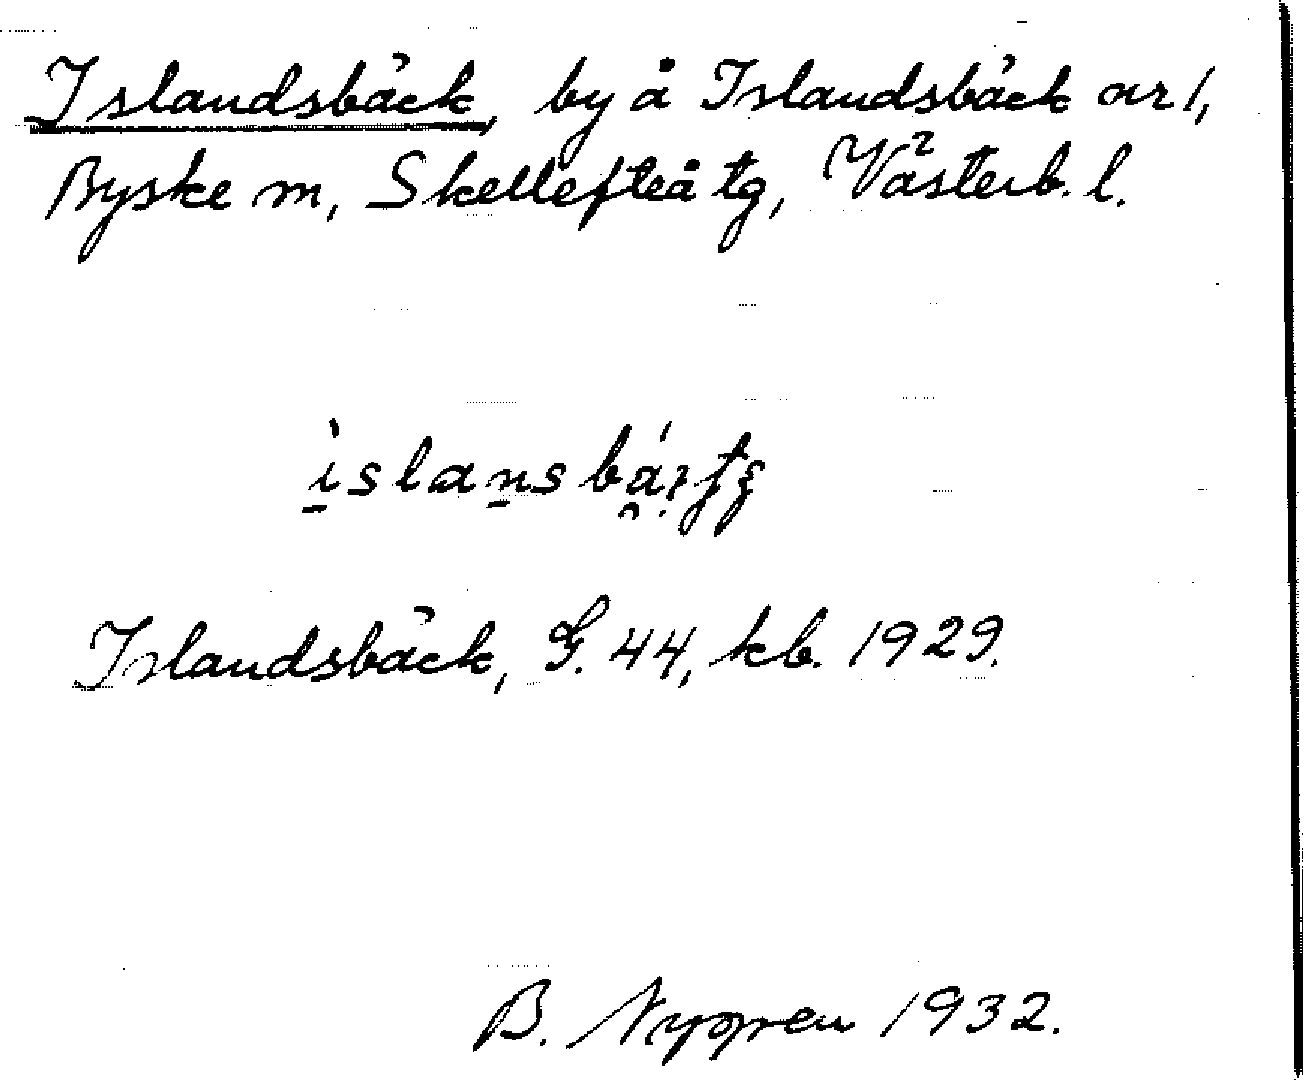 Islandsbäck, by å Islandsbäck nr 1,
Byske sn, Skellefteå tg, Västerb. l.
Islandsbäck, G. 44, kb. 1929.
B. Nygren 1932.